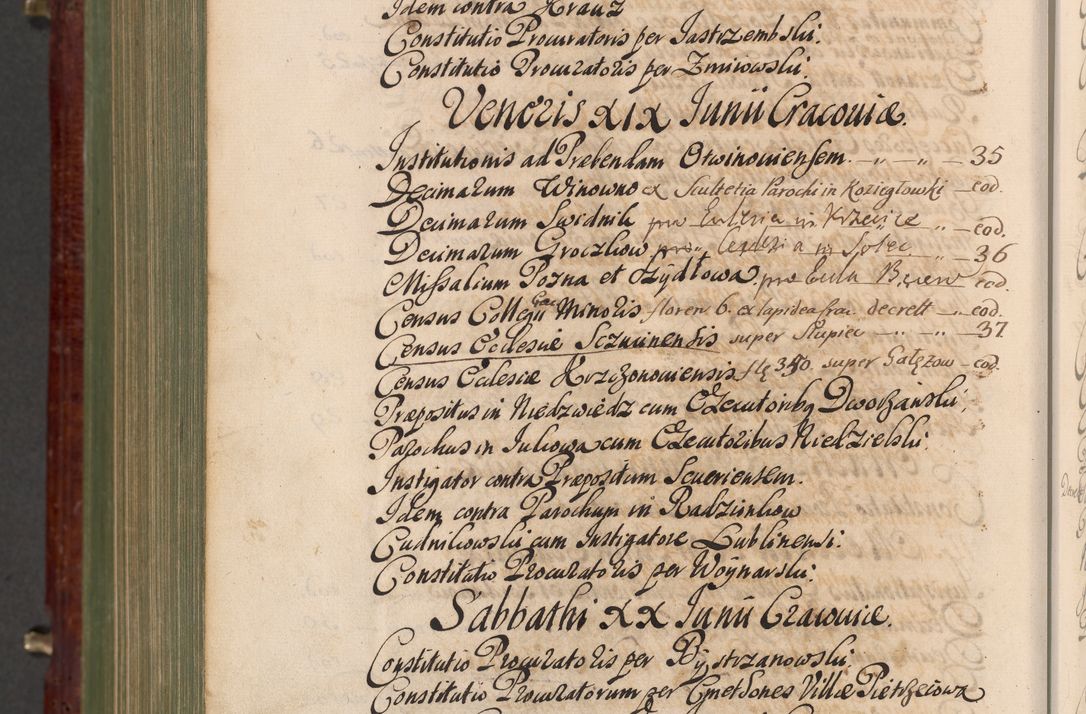 Idem contra Krauz
Constitutio Procuratoris per Jastrzembski:
Constitutio Procuratoris per Zmirowski:
Veneris XIX Junii Cracoviæ.
Institutionis ad Præbendam Otwinoviensem. — „ — „ — 35
Decimarum Winowno ex Scultetia Parochi in Koziegłowki — eod.
Decimarum Swidnik pro Ecclesia in Krzecice „ — eod.
Decimarum Groczkow pro Ecclesia in — 36
Missalium Pozna et Zydłowa pro — eod.
Census Collegii Minoris floren 6. ex lapidea frac. decrett — „ — eod.
Census Ecclesiæ super Słupiec — „ — „ — 37
Census Ecclesiæ Krzczonoviensis 350 super Gałęzow — eod.
Præpositus in Niedzwiedz cum Executoribq Dworzański:
Parochus in Juliowa cum Executoribus Niedzielski:
Instigator contra Præpositum Severiensem.
Idem contra Parochum in Radzionkow
Cudnikowski cum Instigatore Lublinensi:
Constitutio Procuratoris per Woynarski:
Sabbathi XX Junii Cracoviæ.
Constitutio Procuratoris per Bystrzanowski:
Constitutio Procuratorum per Cmethones Villæ Pietrzeiowa